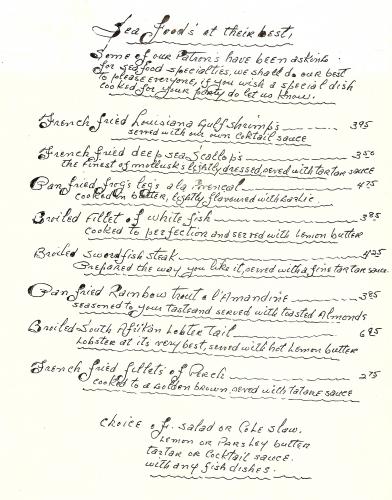 Sea Food's at their best!
Some of our Patron's have been asking
for seafood specialties, we shall do our best
to please everyone, if you wish a special dish
cooked for your party do let us know.
French fried Louisiana Gulf Shrimp's 395
served with our own coktail sauce
French fried deep sea Scallop's 350
the finest of mollusks lightly dressed, served with tartar sauce
Pan fried frog's leg's ala Provencal 475
cooked in butter, lightly flavoured with Garlic
Broiled fillet of white fish 395
cooked to perfection and served with Lemon butter
Broiled swordfish steak 425
Prepared the way you like it, served with a fine tartar sauce
Pan fried Rainbow trout a l'Amandine 395
seasoned to your taste and served with toasted Almonds
Broiled South African Lobster tail 695
Lobster at its very best, served with hot Lemon butter
French fried fillets of Perch 275
cooked to a Golden brown, served with tatare sauce
Choice of: salad or Cole slaw.
Lemon or Parsley butter
tartar or Cocktail sauce.
with any fish dishes.